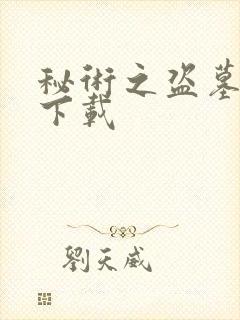 秘術之盜墓
下載
劉天威